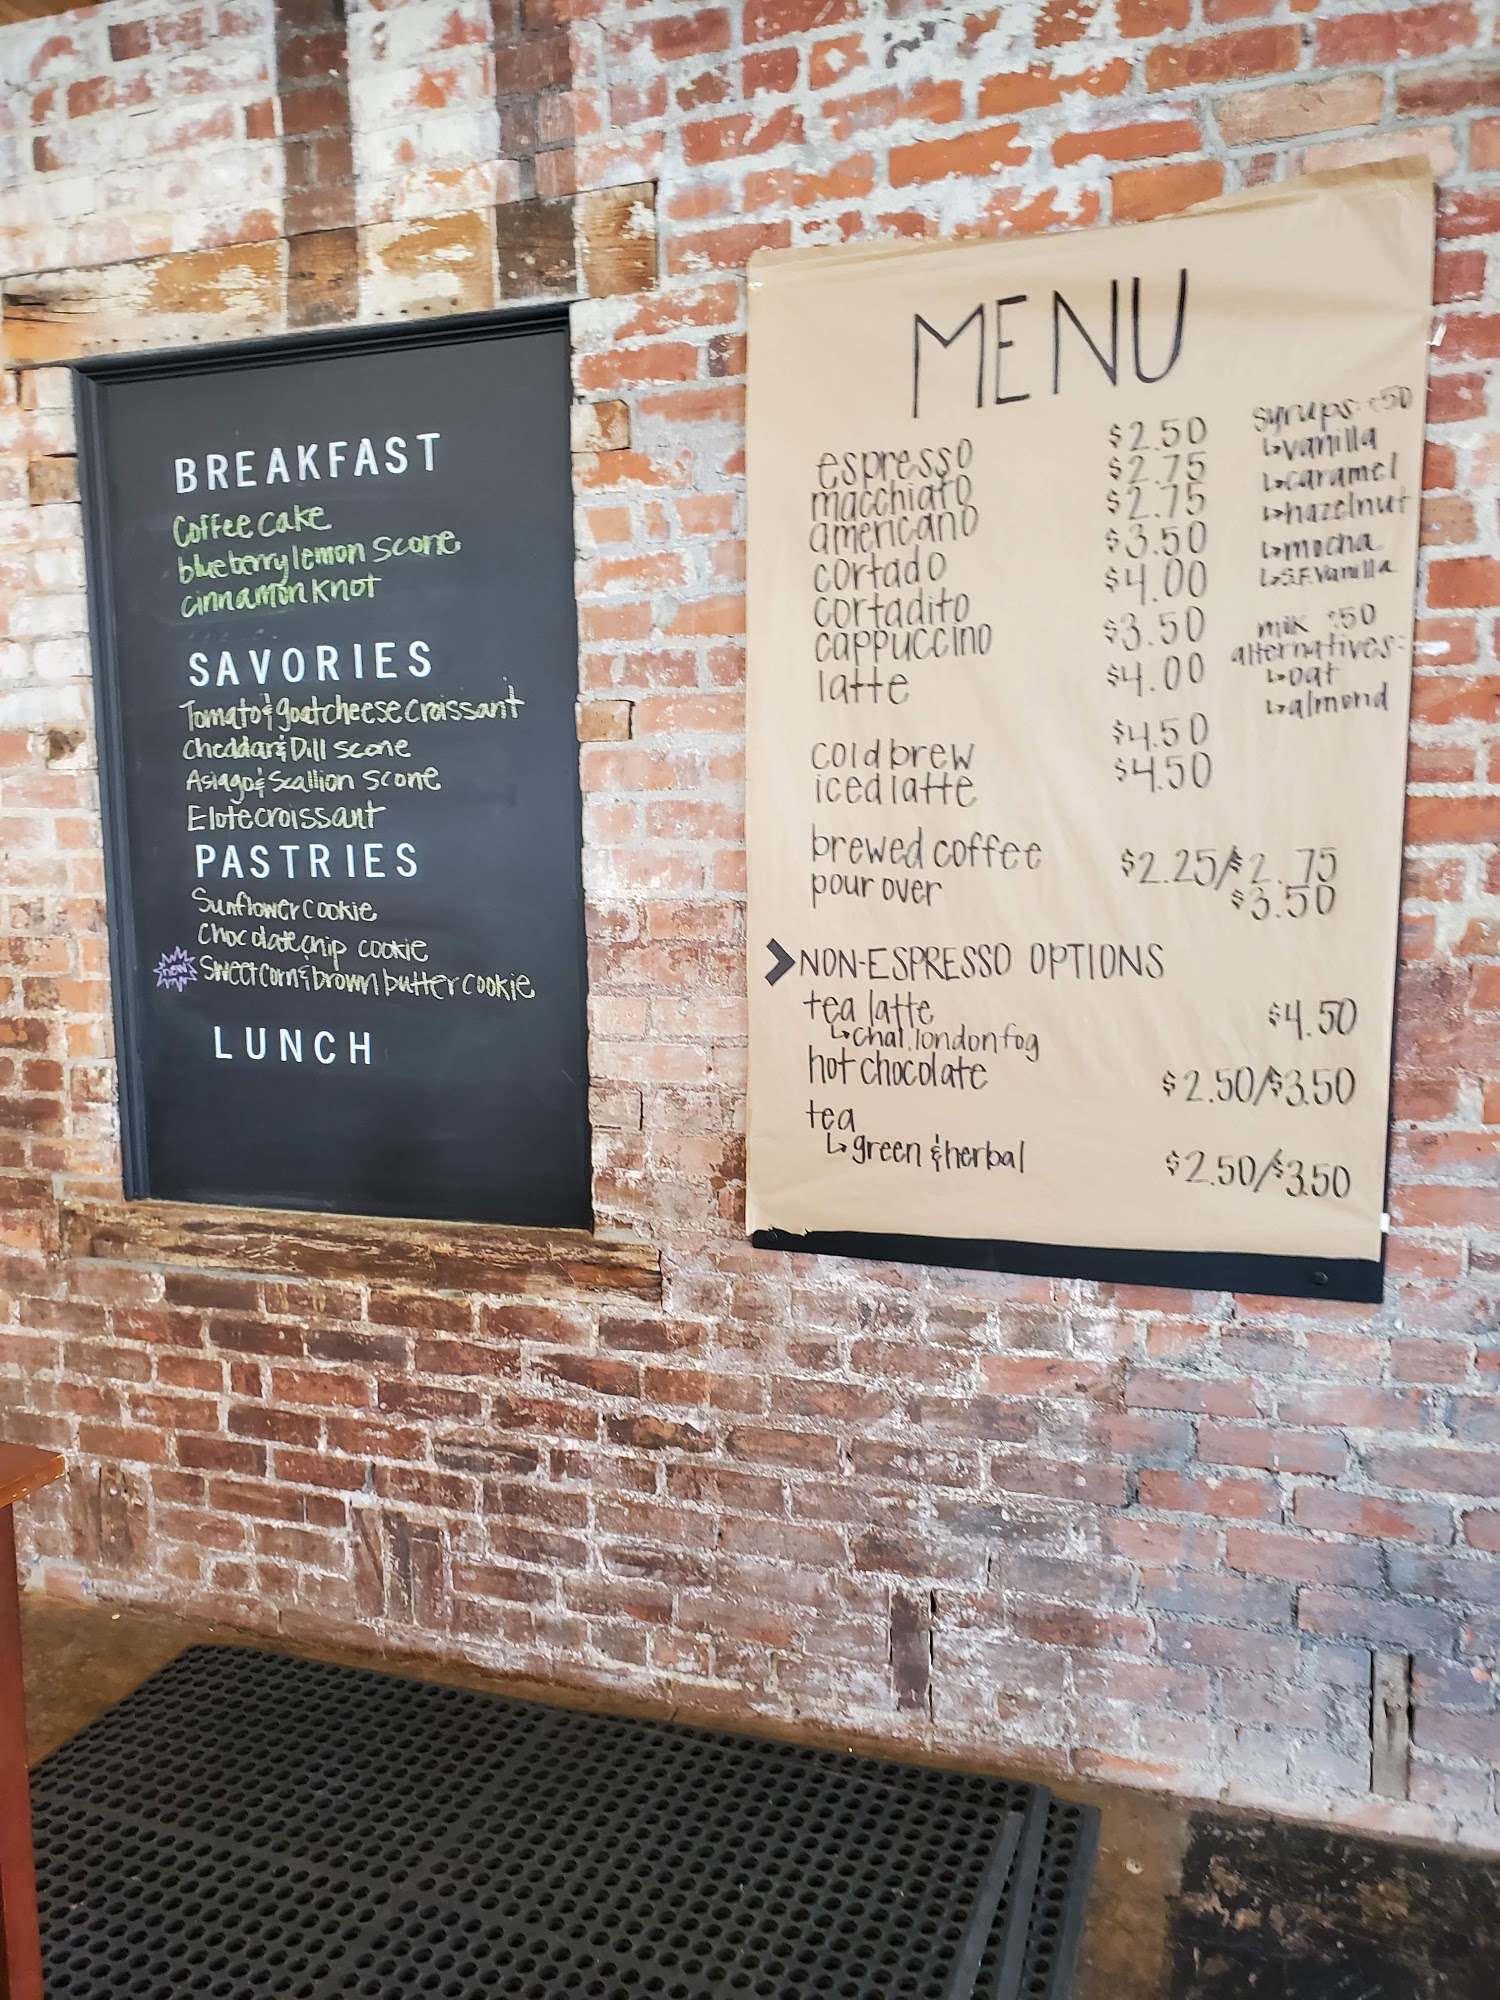 BREAKFAST
Coffee cake
blueberry lemon scone
cinnamon knot
SAVORIES
Tomato & goat cheese croissant
Cheddar & Dill scone
Asiago & Scallion scone
Elote croissant
PASTRIES
Sunflower cookie
chocolate chip cookie
new Sweet corn & brown butter cookie
LUNCH
MENU
espresso $2.50
macchiato $2.75
americano $2.75
cortado $3.50
cortadito $4.00
cappuccino $3.50
latte $4.00
cold brew $4.50
iced latte $4.50
brewed coffee $2.25/$2.75
pour over $3.50
syrups: $.50
↳vanilla
↳caramel
↳hazelnut
↳mocha
↳S.F. Vanilla
milk $.50
alternatives:
↳oat
↳almond
> NON-ESPRESSO OPTIONS
tea latte $4.50
↳chai, london fog
hot chocolate $2.50/$3.50
tea
↳green & herbal $2.50/$3.50